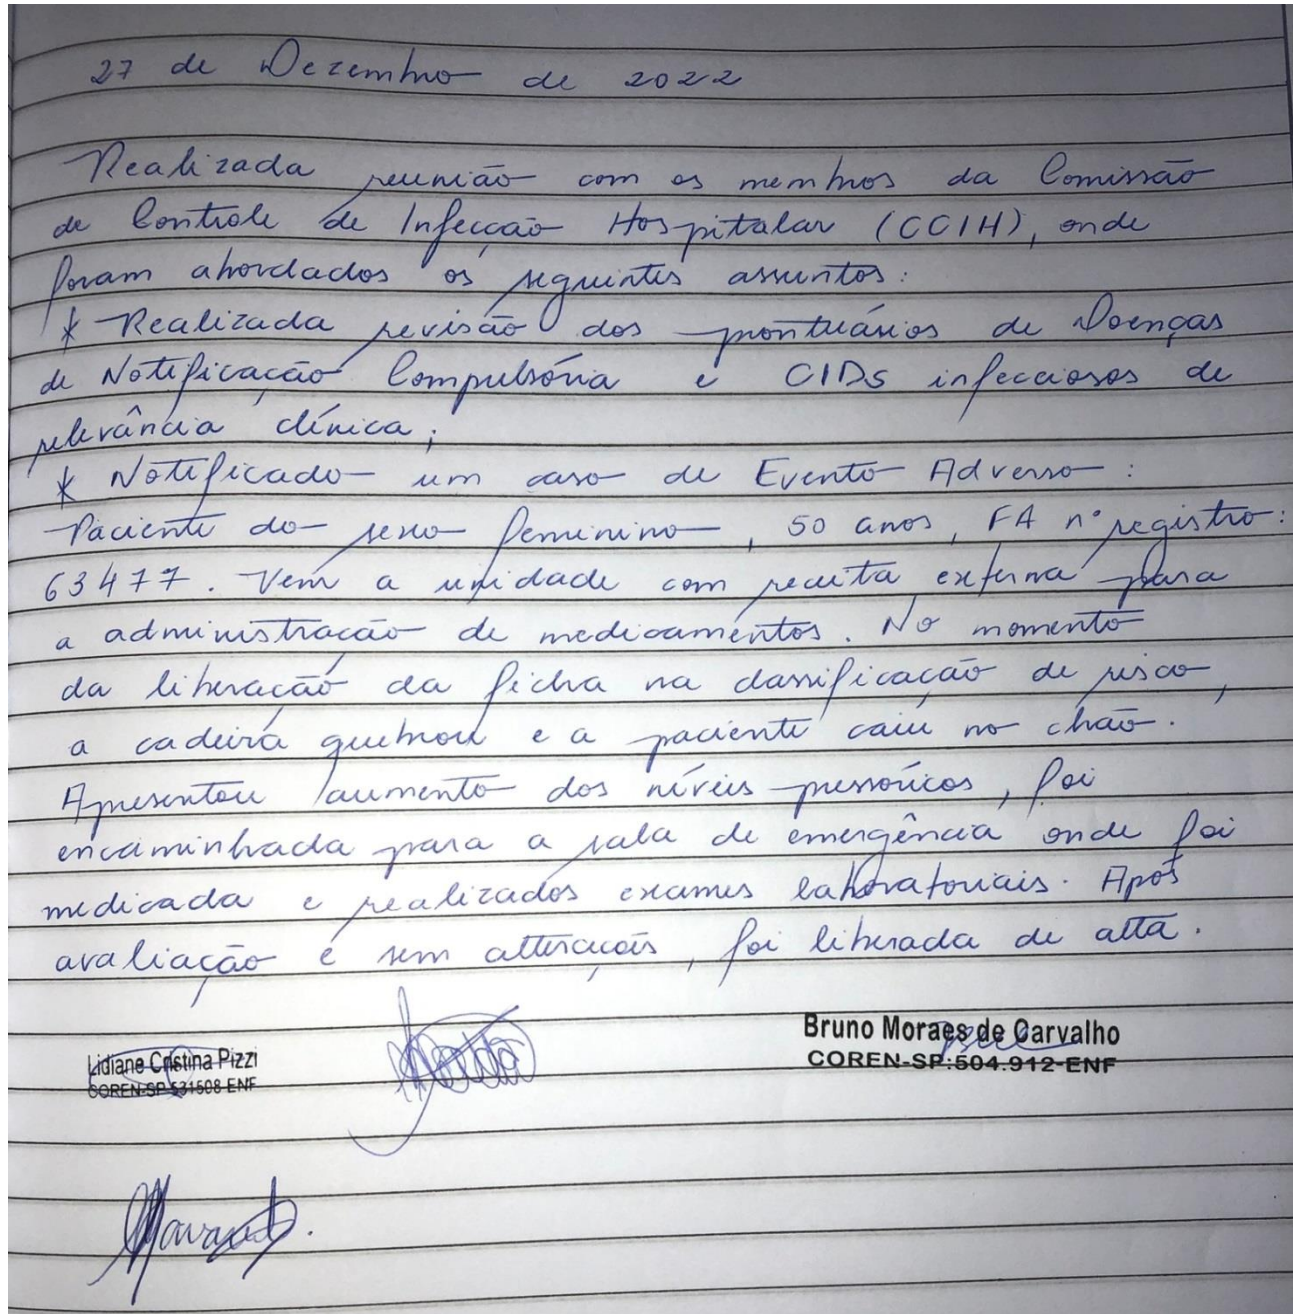 27 de Dezembro de 2022
Realizada reunião com os membros da Comissão
de Controle de Infecção Hospitalar (CCIH), onde
foram abordados os seguintes assuntos:
* Realizada revisão dos prontuários de Doenças
de Notificação Compulsória e CIDs infecciosos de
relevância clínica;
* Notificado um caso de Evento Adverso:
Paciente do sexo feminino, 50 anos, FA nº registro:
63477. Vem a unidade com receita externa para
a administração de medicamentos. No momento
da liberação da ficha na classificação de risco,
a cadeira quebrou e a paciente caiu no chão.
Apresentou aumento dos níveis pressóricos, foi
encaminhada para a sala de emergência onde foi
medicada e realizados exames laboratoriais. Após
avaliação e sem alterações, foi liberada de alta.
Lidiane Cristina Pizzi
COREN-SP 531508-ENF
Bruno Moraes de Carvalho
COREN-SP:504.912-ENF